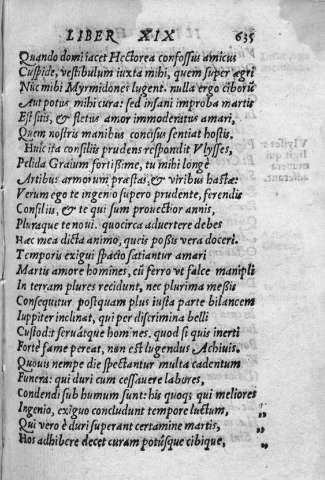 LIBER XIX 635
Quando domi iacet Hectorea confossus amicus
Cuspide, vestibulum iuxta mihi, quem super ægri
Nũc mihi Myrmidones lugent. nulla ergo ciborũ
Aut potus mihi cura: sed insani improba martis
Est sitis, & fletus amor immoderatus amari,
Quem nostris manibus concisus sentiat hostis.
Huic ita consiliis prudens respondit Vlysses,
Pelida Graium fortissime, tu mihi longè
Artibus armorum præstas, & viribus hastæ:
Verum ego te ingenio supero prudente, ferendis
Consiliis, & te qui sum prouectior annis,
Pluraque te noui. quocirca aduertere debes
Hæc mea dicta animo, queis possis vera doceri.
Temporis exigui spacio satiantur amari
Martis amore homines, cũ ferro vt falce manipli
In terram plures recidunt, nec plurima messis
Consequitur postquam plus iusta parte bilancem
Iuppiter inclinat, qui per discrimina belli
Custodit seruátque homines. quod si quis inerti
Fortè fame pereat, non est lugendus Achiuis.
Quouis nempe die spectantur multa cadentum
Funera: qui duri cum cessauere labores,
Condendi sub humum sunt: his quoqȝ qui meliores
Ingenio, exiguo concludunt tempore luctum, „
Qui vero è duri superant certamine martis, „
Hos adhibere decet curam potúsque cibique, „